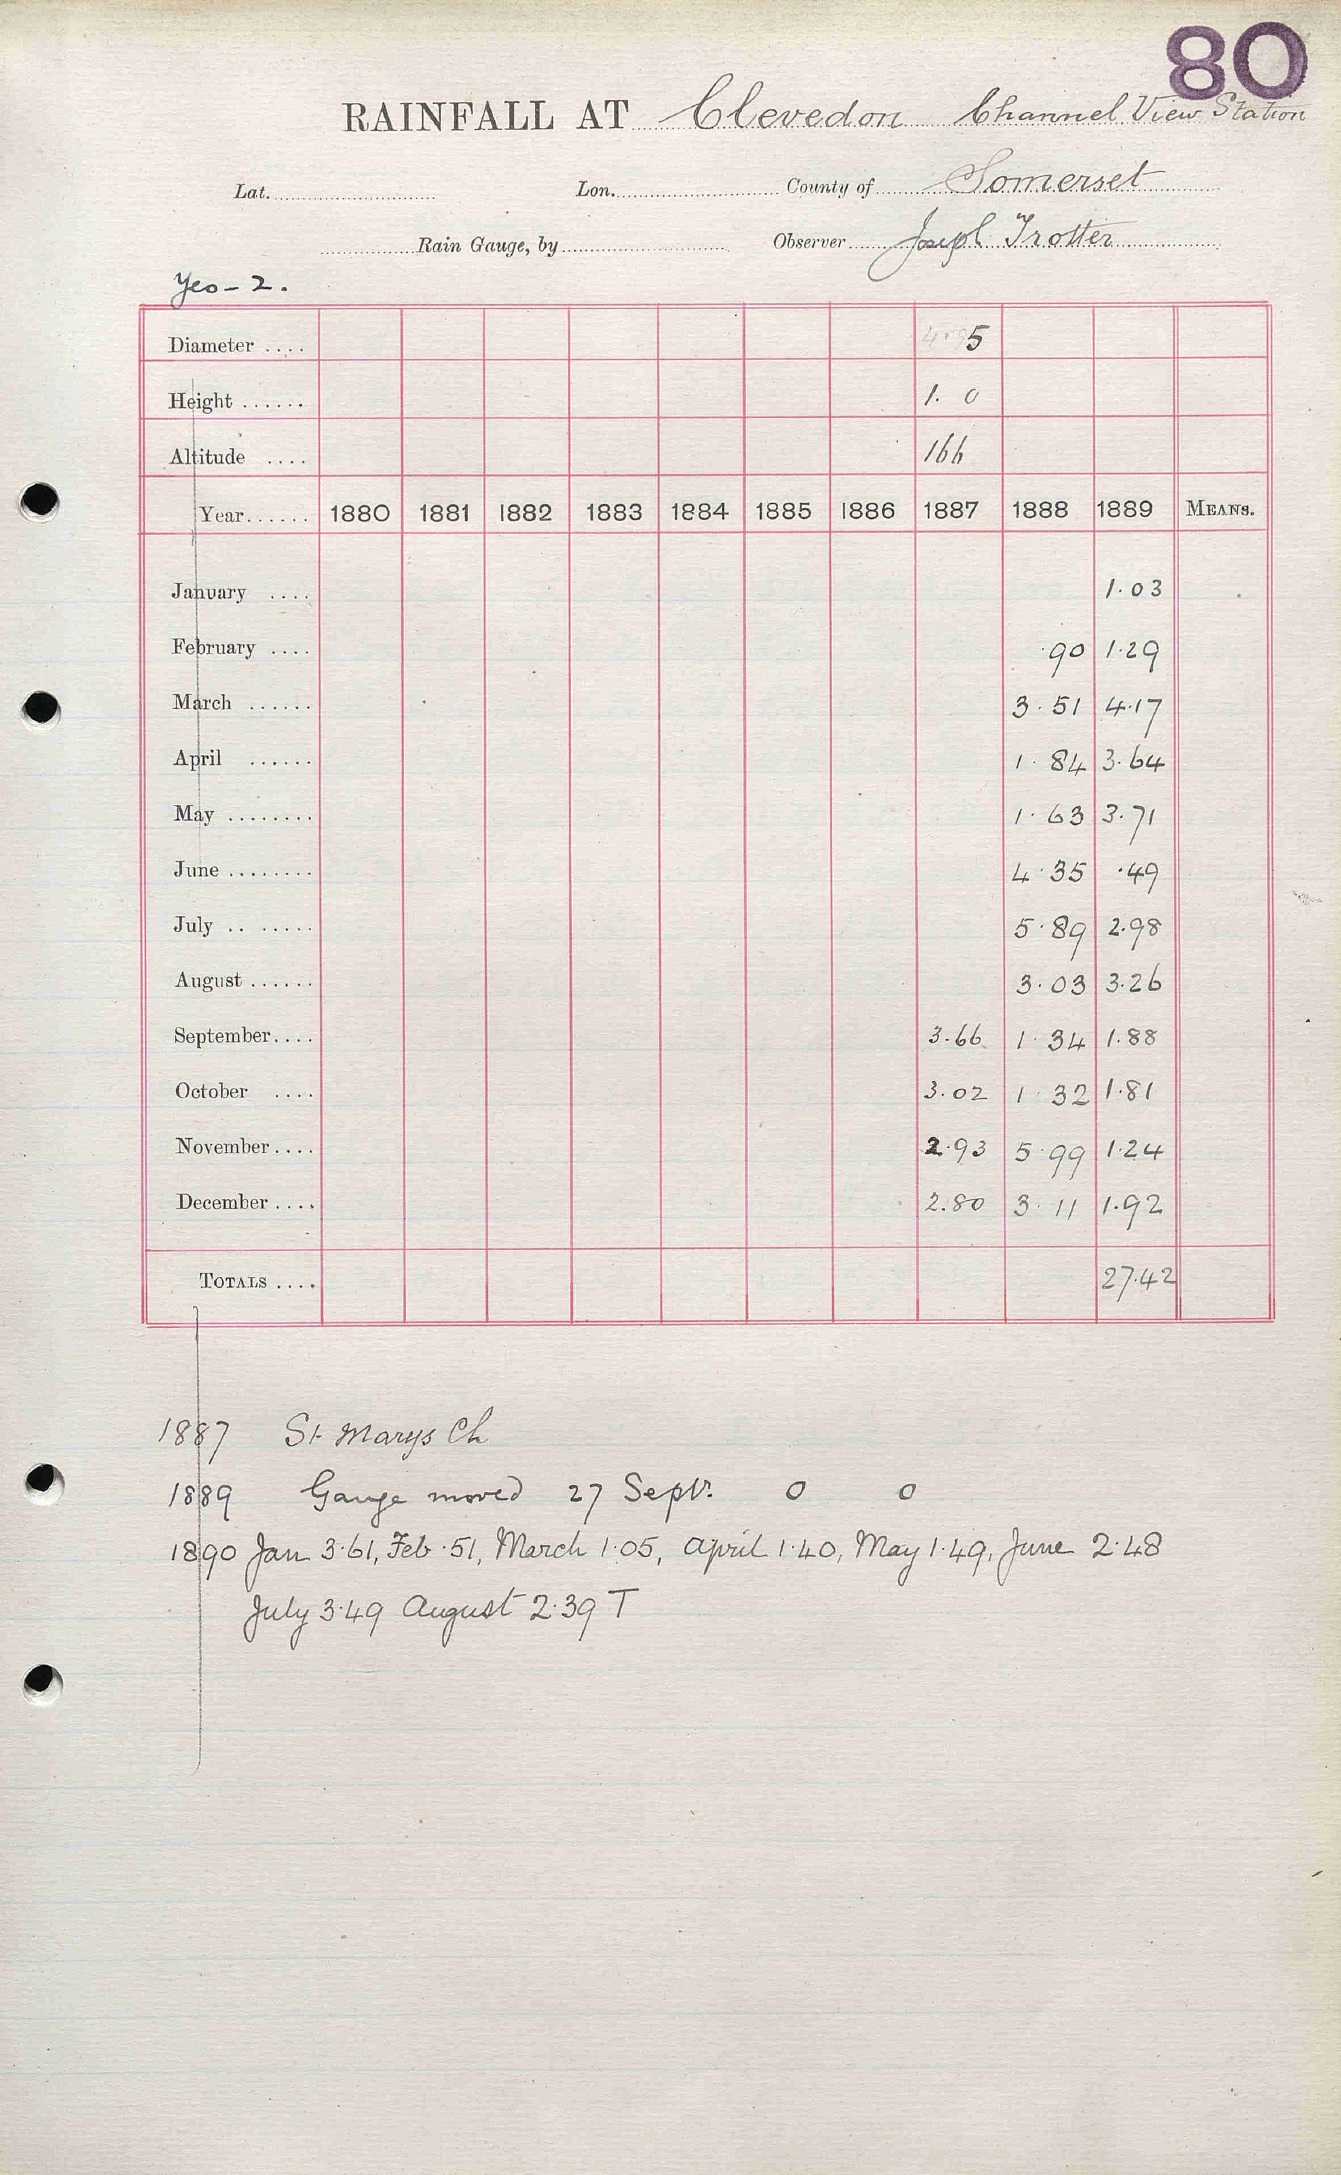 80
RAINFALL AT Clevedon Channel View Station
Lat. Lon. County of Somerset
Rain Gauge, by Observer Joseph Trotter
Yeo-2.
Diameter .... 5
Height ...... 1. 0
Altitude .... 166
Year...... 1880 1881 1882 1883 1884 1885 1886 1887 1888 1889 MEANS.
January .... 1.03
February .... .90 1.29
March ...... 3.51 4.17
April ...... 1.84 3.64
May ........ 1.63 3.71
June ........ 4.35 .49
July .. ..... 5.89 2.98
August ...... 3.03 3.26
September.... 3.66 1.34 1.88
October .... 3.02 1.32 1.81
November.... 2.93 5.99 1.24
December.... 2.80 3.11 1.92
TOTALS .... 27.42
1887 St Marys Ch
1889 Gauge moved 27 Sept. 0 0
1890 Jan 3.61, Feb .51, March 1.05, April 1.40, May 1.49, June 2.48
July 3.49 August 2.39 T